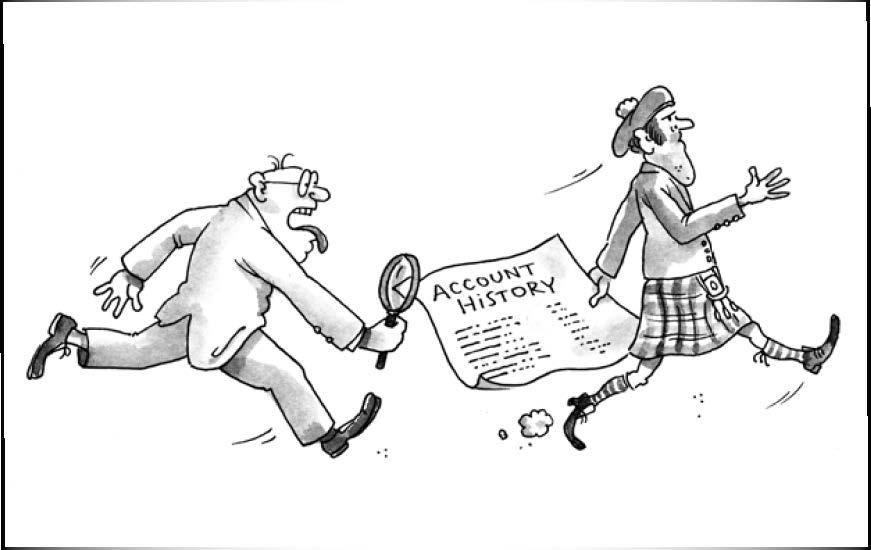 ACCOUNT
HiSTORY